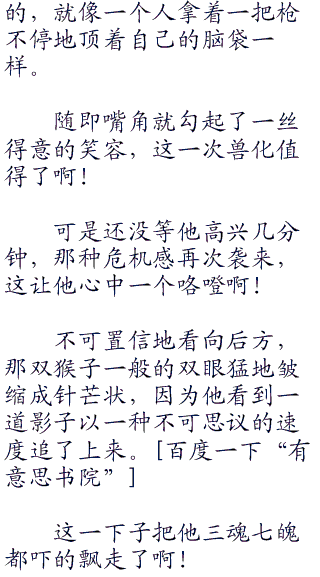 的，就像一个人拿着一把枪
不停地顶着自己的脑袋一
样。
随即嘴角就勾起了一丝
得意的笑容，这一次兽化值
得了啊！
可是还没等他高兴几分
钟，那种危机感再次袭来，
这让他心中一个咯噔啊！
不可置信地看向后方，
那双猴子一般的双眼猛地皱
缩成针芒状，因为他看到一
道影子以一种不可思议的速
度追了上来。[百度一下“有
意思书院”]
这一下子把他三魂七魄
都吓的飘走了啊！